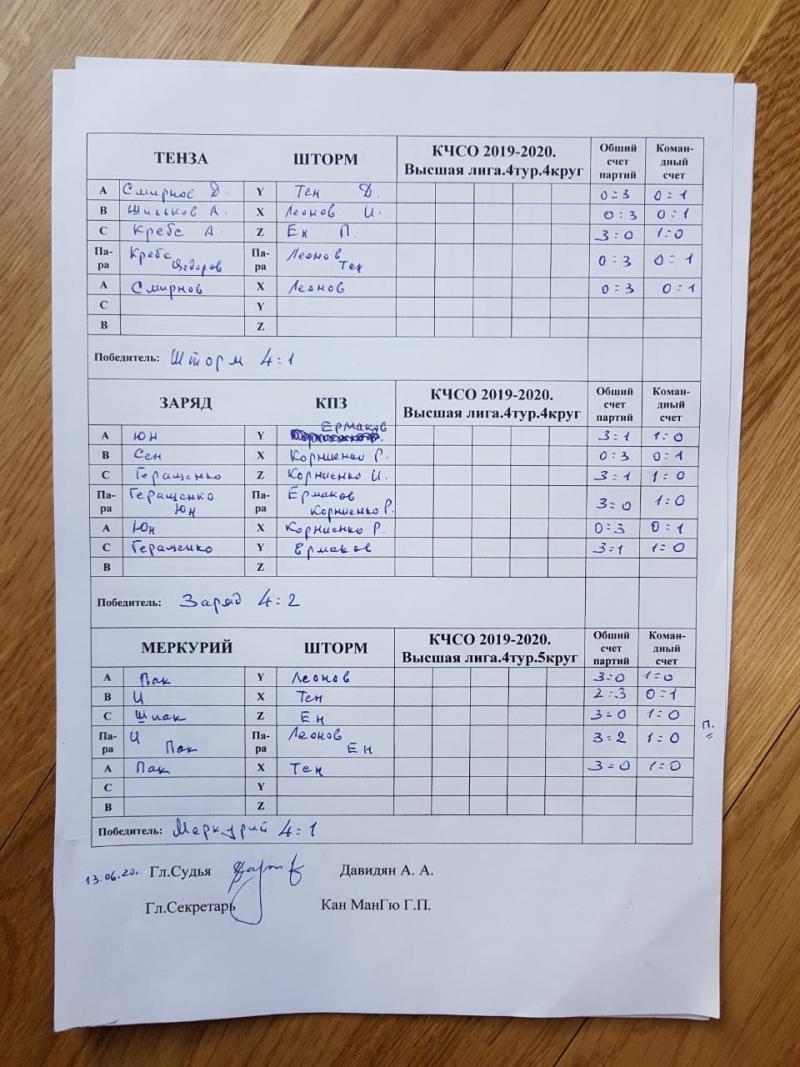 ТЕНЗА ШТОРМ КЧСО 2019-2020. Высшая лига.4тур.4круг Общий счет партий Коман-дный счет
А Смирнов Д. Y Тен Д. 0:3 0:1
В Шильков А. X Леонов И. 0:3 0:1
С Кребс А. Z Ен П. 3:0 1:0
Па-ра Кребс Федоров Па-ра Леонов Тен 0:3 0:1
А Смирнов X Леонов 0:3 0:1
С Y
В Z
Победитель: Шторм 4:1
ЗАРЯД КПЗ КЧСО 2019-2020. Высшая лига.4тур.4круг Обший счет партий Коман-дный счет
А Юн Y Ермаков 3:1 1:0
В Сен X Корниенко Р. 0:3 0:1
С Геращенко Z Корниенко И. 3:1 1:0
Па-ра Геращенко Юн Па-ра Ермаков Корниенко Р. 3:0 1:0
А Юн X Корниенко Р. 0:3 0:1
С Геращенко Y Ермаков 3:1 1:0
В Z
Победитель: Заряд 4:2
МЕРКУРИЙ ШТОРМ КЧСО 2019-2020. Высшая лига.4тур.5круг Обший счет партий Коман-дный счет
А Пак Y Леонов 3:0 1:0
В И X Тен 2:3 0:1
С Шпак Z Ен 3:0 1:0
Па-ра И Пак Па-ра Леонов Ен 3:2 1:0 п.
А Пак X Тен 3:0 1:0
С Y
В Z
Победитель: Меркурий 4:1
13.06.20г. Гл.Судья Давидян А. А.
Гл.Секретарь Кан МанГю Г.П.